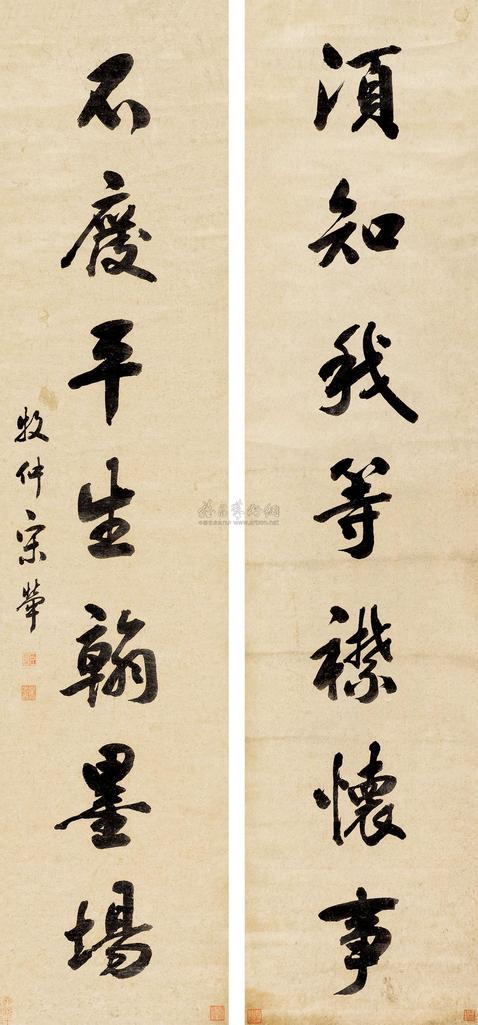 須知我等襟懷事
不廢平生翰墨場
牧仲宋犖
www.artron.net